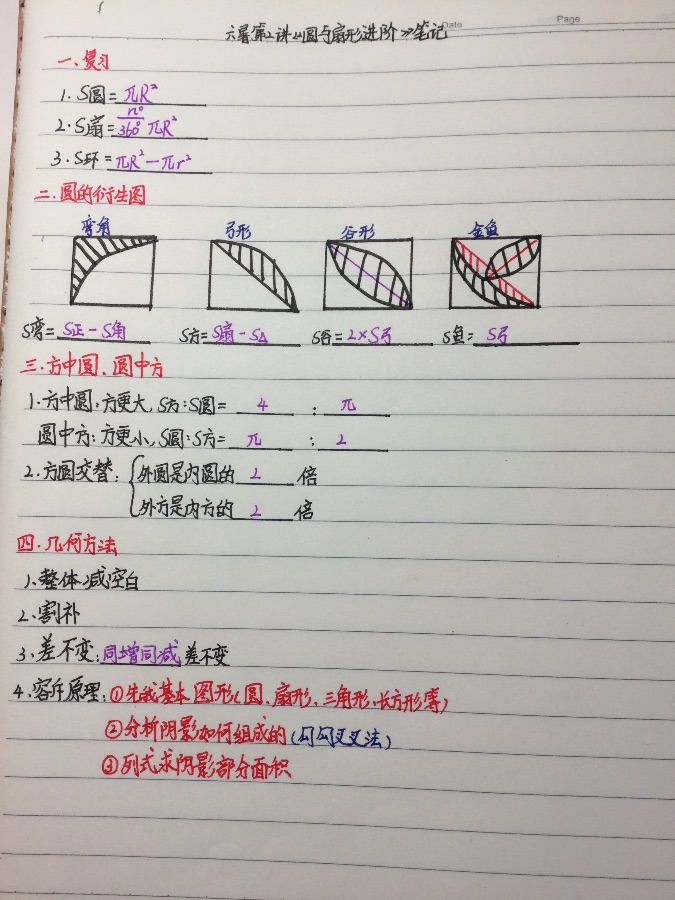 Date Page
六暑第2讲《圆与扇形进阶》笔记
一、复习
1. S圆= πR²
2. S扇= n°/360° πR²
3. S环= πR²-πr²
二.圆的衍生图
弯角 弓形 谷形 金鱼
S弯= S正-S角 S方= S扇-S△ S谷= 2×S弓 S鱼= S弓
三.方中圆、圆中方
1.方中圆:方更大,S方:S圆= 4 : π
圆中方:方更小,S圆:S方= π : 2
2.方圆交替:{外圆是内圆的 2 倍
外方是内方的 2 倍
四.几何方法
1.整体减空白
2.割补
3.差不变:同增同减差不变
4.容斥原理:①先找基本图形(圆、扇形、三角形、长方形等)
②分析阴影如何组成的(勾勾叉叉法)
③列式求阴影部分面积